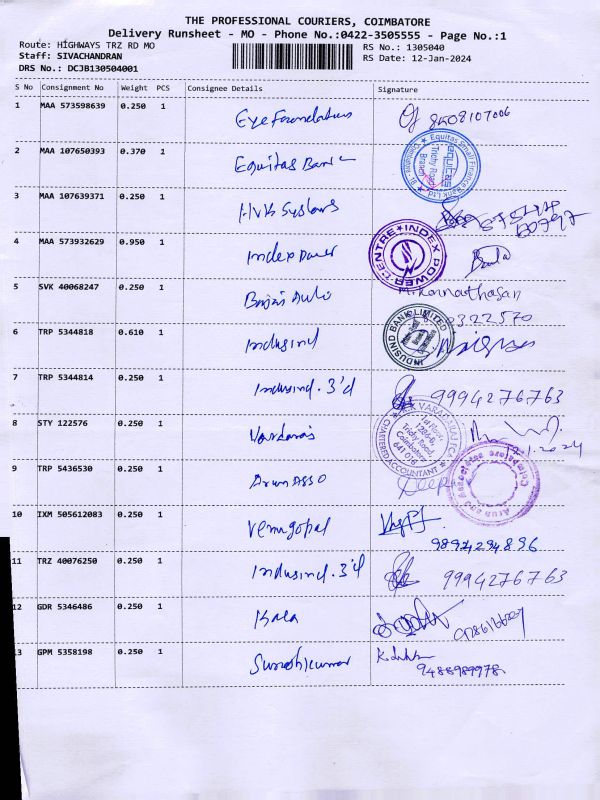 THE PROFESSIONAL COURIERS, COIMBATORE
Delivery Runsheet - MO - Phone No.:0422-3505555 - Page No.:1
Route: HIGHWAYS TRZ RD MO RS No.: 1305040
Staff: SIVACHANDRAN RS Date: 12-Jan-2024
DRS No.: DCJB130504001
S No Consignment No Weight PCS Consignee Details Signature
1 MAA 573598639 0.250 1 Eye Foundation 8508107006
2 MAA 107650393 0.370 1 Equitas Bank
Equitas Small Finance Bank Ltd. equitas Trichy Road Branch
3 MAA 107639371 0.250 1 HVK Systems
4 MAA 573932629 0.950 1 Index Power
INDEX POWER CENTRE
5 SVK 40068247 0.250 1 Bajaj Auto M. Kannathasan
6 TRP 5344818 0.610 1 Indusind
INDUSIND BANK LIMITED
7 TRP 5344814 0.250 1 Indusind. 3'd 9994276763
8 STY 122576 0.250 1 Vardaraj
CHARTERED ACCOUNTANT
1st Floor,
1284-B,
Trichy Road,
Coimbatore
641 018
9 TRP 5436530 0.250 1 Arun Asso Deepa
Arun and Associates Coimbatore
10 IXM 505612083 0.250 1 Venugopal
9894294896
11 TRZ 40076250 0.250 1 Indusind. 3'd 9994276763
12 GDR 5346486 0.250 1 Kala
13 GPM 5358198 0.250 1 Sureshkumar
9488989978